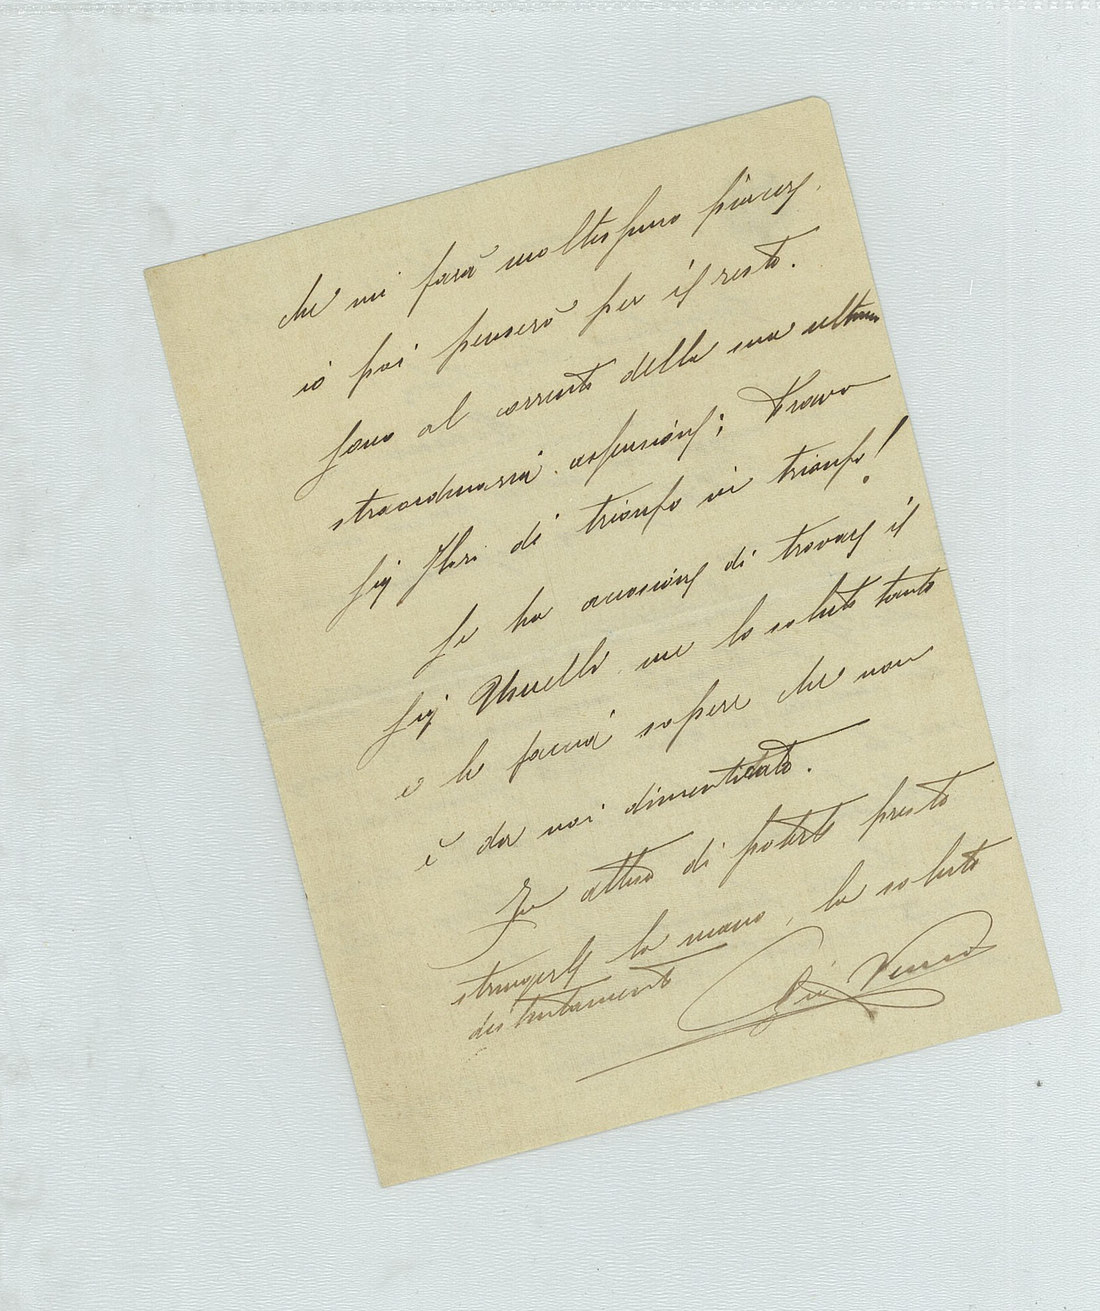 che mi farà moltissimo piacere.
io poi penserò per il resto.
Sono al corrente della sua ultima
straordinaria ascensione; Bravo
Sig di trionfo in trionfo!
Se ha occasione di trovare il
Sig Usuelli me lo saluti tanto
e le faccia sapere che non
è da noi dimenticato.
In attesa di poterle presto
stringerle la mano, la saluto
distintamente